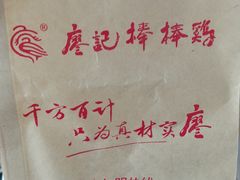 廖記棒棒鷄
千方百计
只为真材实廖